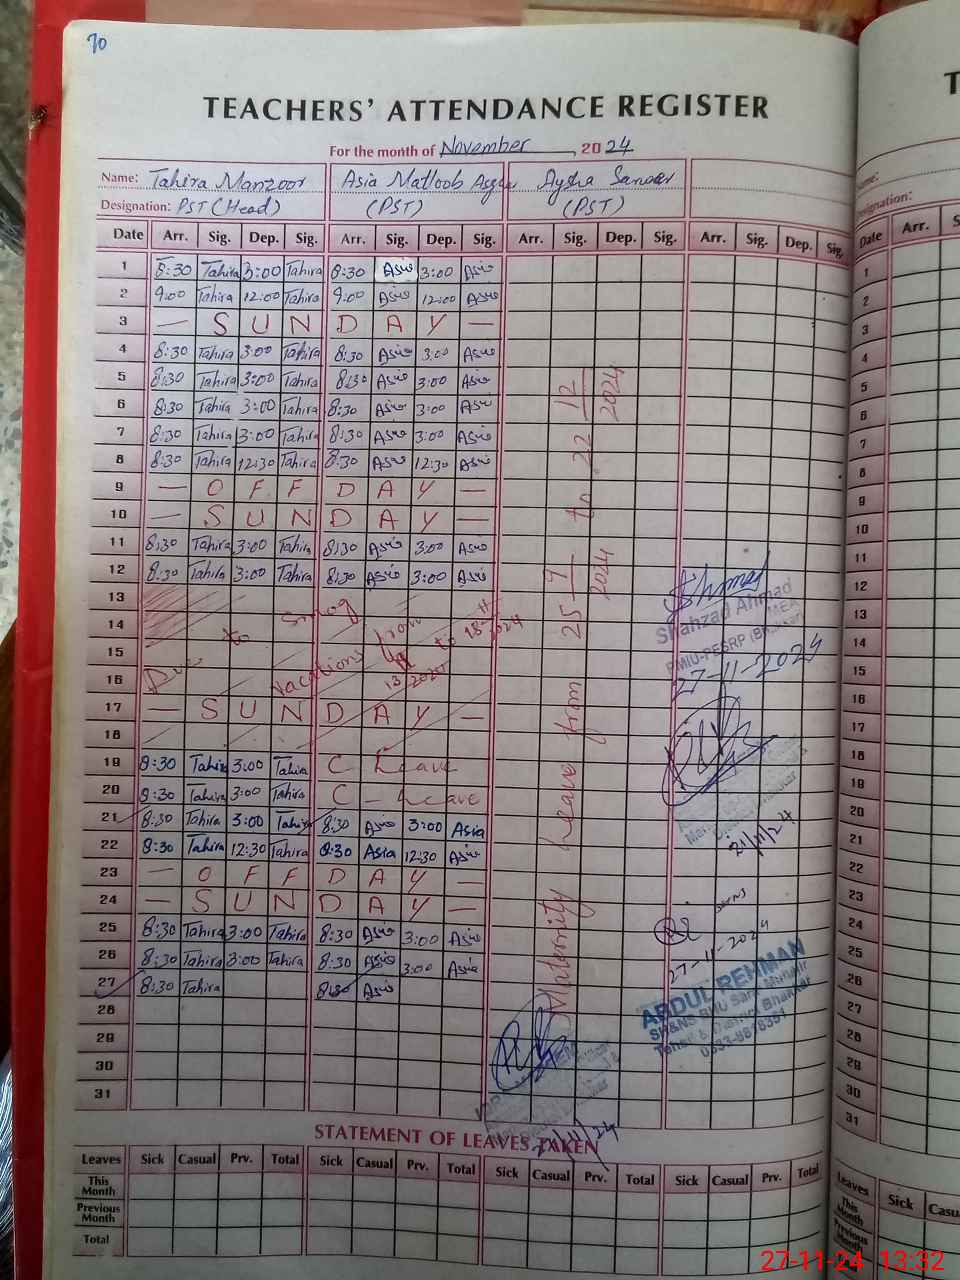 70
TEACHERS' ATTENDANCE REGISTER
For the month of November, 2024
Name: Tahira Manzoor Asia Matloob Aysha
Designation: PST (Head) (PST) (PST)
Date Arr. Sig. Dep. Sig. Arr. Sig. Dep. Sig. Arr. Sig. Dep. Sig. Arr. Sig. Dep. Sig.
1 8:30 Tahira 3:00 Tahira 8:30 Asia 3:00 Asia
2 9:00 Tahira 12:00 Tahira 9:00 Asia 12:00 Asia
3 — S U N D A Y —
4 8:30 Tahira 3:00 Tahira 8:30 Asia 3:00 Asia
5 8:30 Tahira 3:00 Tahira 8:30 Asia 3:00 Asia
6 8:30 Tahira 3:00 Tahira 8:30 Asia 3:00 Asia
7 8:30 Tahira 3:00 Tahira 8:30 Asia 3:00 Asia
8 8:30 Tahira 12:30 Tahira 8:30 Asia 12:30 Asia
9 — O F F D A Y —
10 — S U N D A Y —
11 8:30 Tahira 3:00 Tahira 8:30 Asia 3:00 Asia
12 8:30 Tahira 3:00 Tahira 8:30 Asia 3:00 Asia
13
14
15
16
Due to Smog
Vacations from
to 18-11-2024
17 — S U N D A Y —
18
19 8:30 Tahira 3:00 Tahira C Leave
20 8:30 Tahira 3:00 Tahira C - Leave
21 8:30 Tahira 3:00 Tahira 8:30 Asia 3:00 Asia
22 8:30 Tahira 12:30 Tahira 8:30 Asia 12:30 Asia
23 — O F F D A Y —
24 — S U N D A Y —
25 8:30 Tahira 3:00 Tahira 8:30 Asia 3:00 Asia
26 8:30 Tahira 3:00 Tahira 8:30 Asia 3:00 Asia
27 8:30 Tahira 8:30 Asia
28
29
30
31
Maternity Leave from 25-9-2024 to 22-12-2024
Shahzad Ahmad
MEA
PMIU-PESRP
27-11-2024
21/11/24
27-11-2024
ABDUL REHMAN
SH&NS BHU
Tehsil & District Bhakkar
STATEMENT OF LEAVES TAKEN
Leaves Sick Casual Prv. Total Sick Casual Prv. Total Sick Casual Prv. Total Sick Casual Prv. Total
This Month
Previous Month
Total
Name:
Designation:
Date Arr.
1
2
3
4
5
6
7
8
9
10
11
12
13
14
15
16
17
18
19
20
21
22
23
24
25
26
27
28
29
30
31
Leaves Sick
This Month
Previous Month
Total
27-11-24 13:32